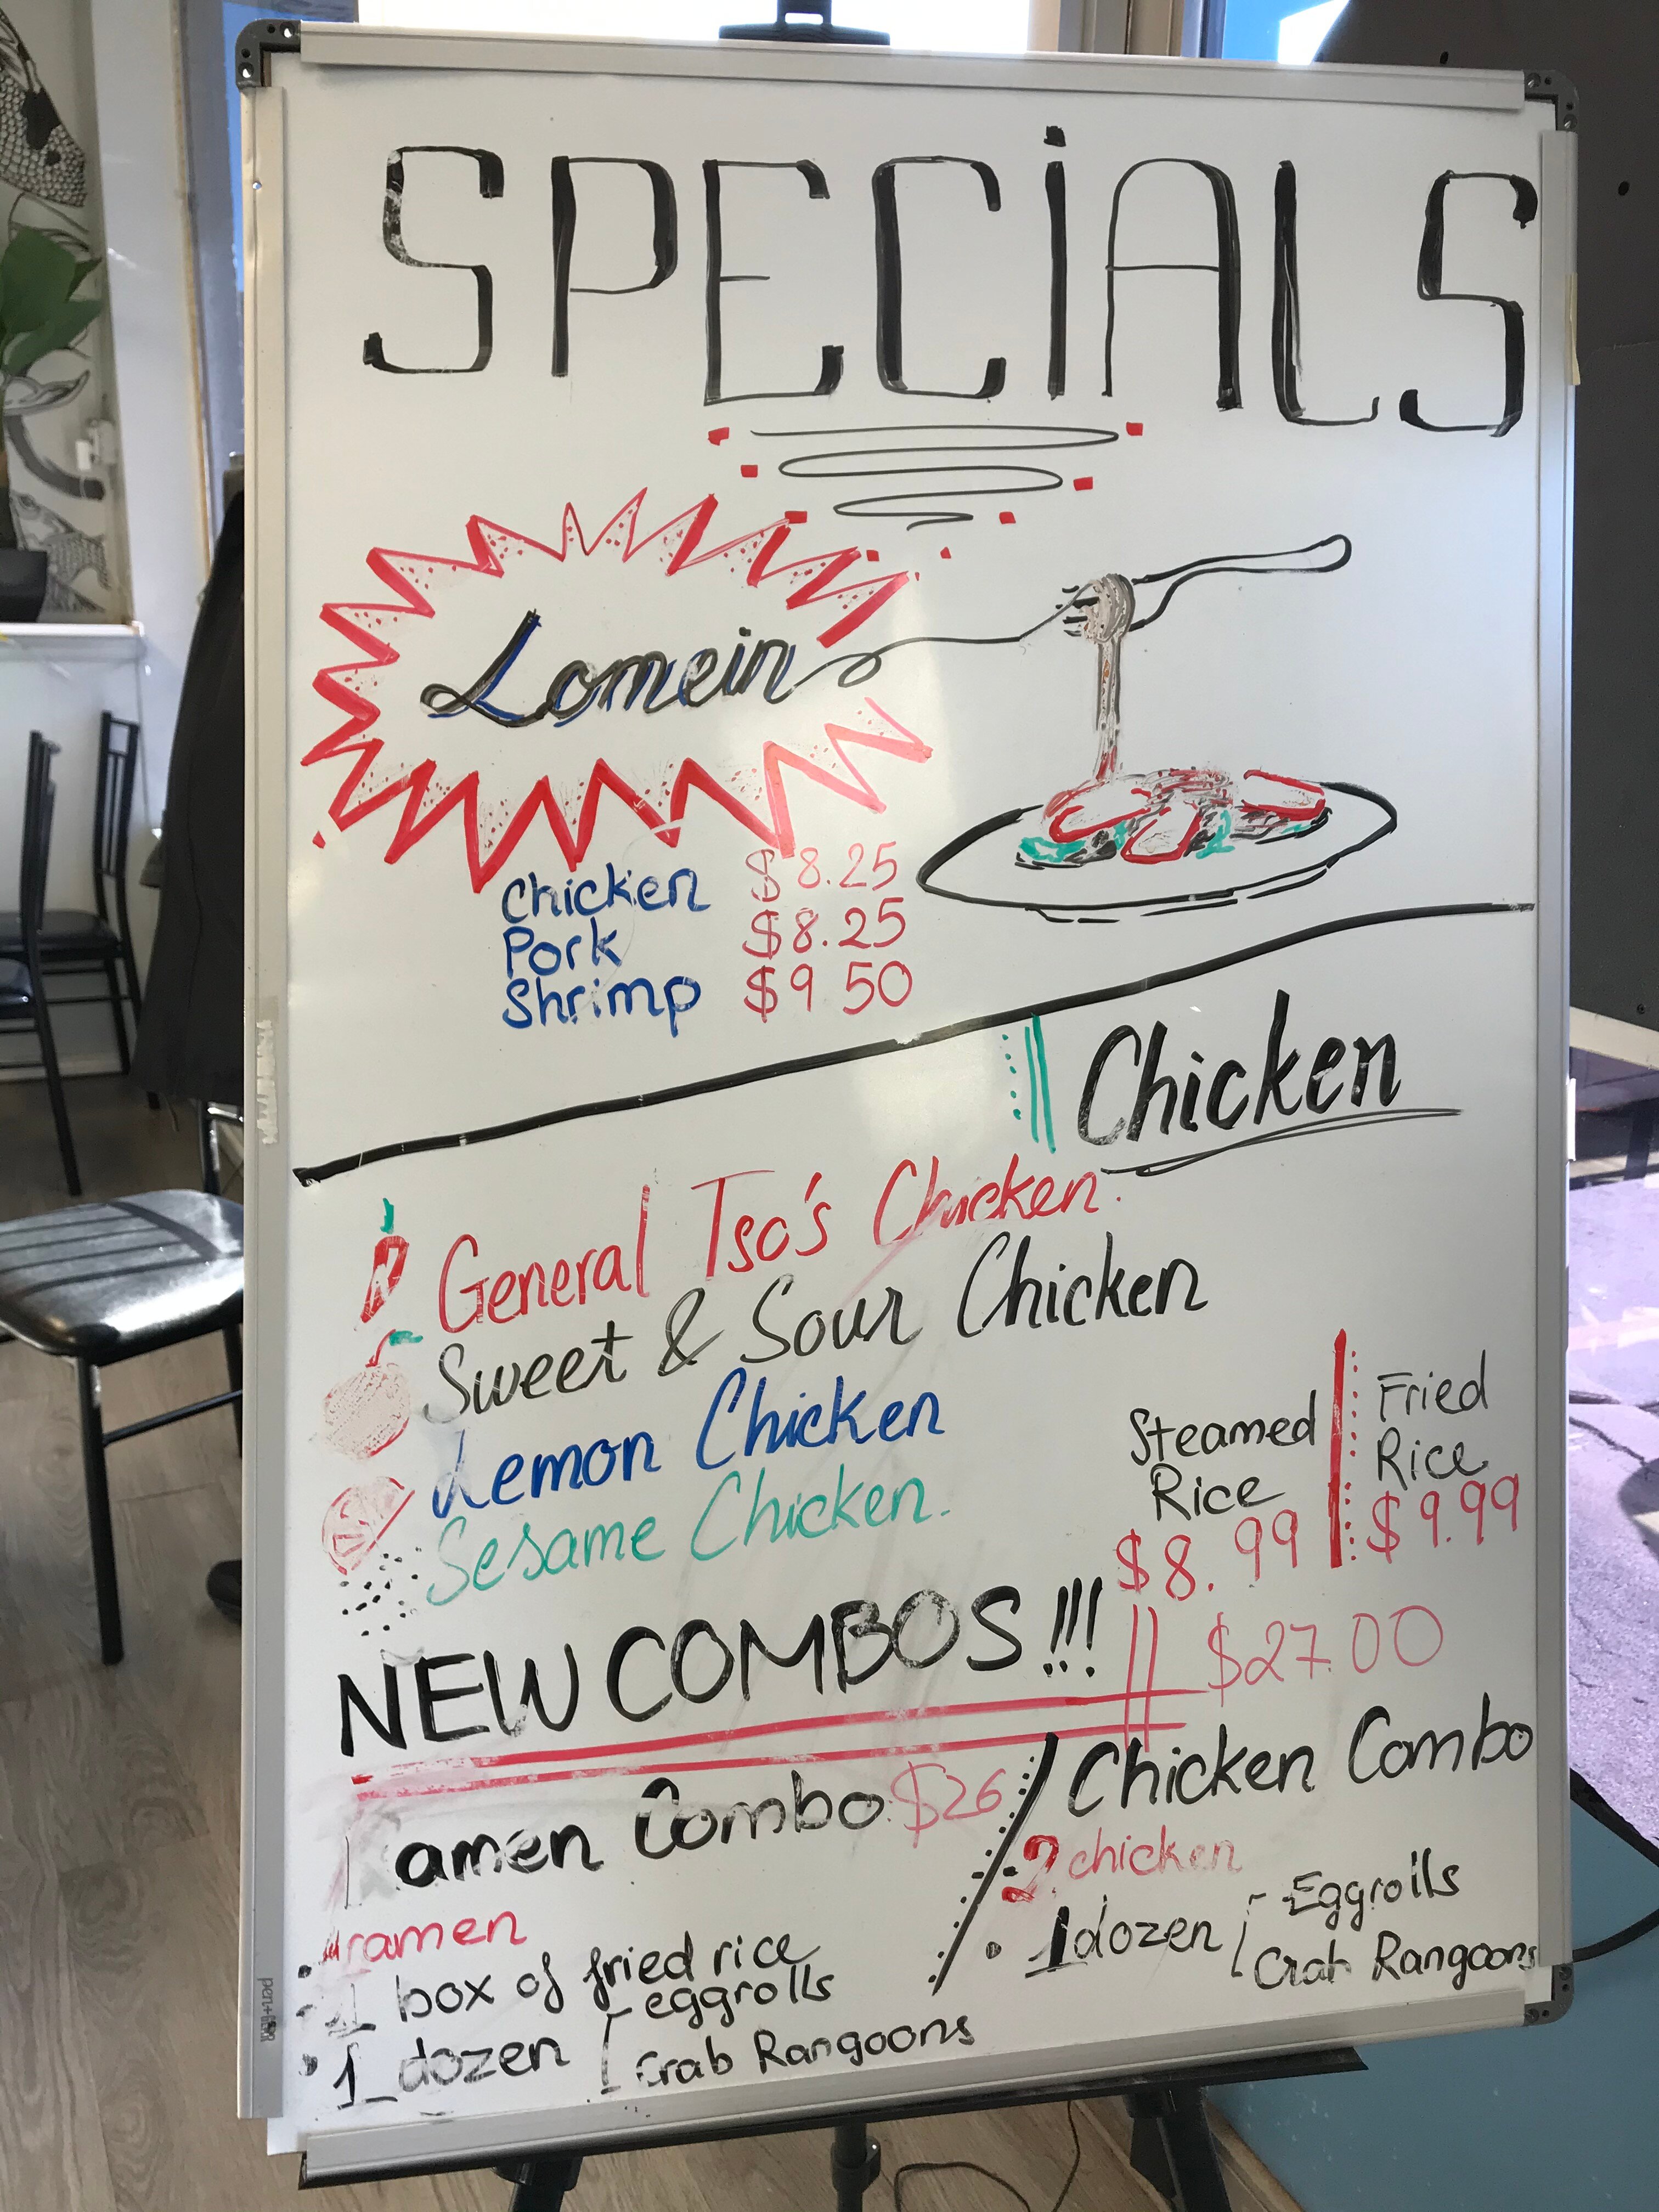 SPECiALS
Lomein
Chicken $8.25
Pork $8.25
Shrimp $9 50
Chicken
General Tso's Chicken.
Sweet & Sour Chicken
Lemon Chicken
Sesame Chicken.
Steamed Rice $8.99
Fried Rice $9.99
NEW COMBOS!!!
$27.00
amen Combo $26
ramen
1 box of fried rice
1 dozen eggrolls
Crab Rangoons
Chicken Combo
2 chicken
1 dozen Eggrolls
Crab Rangoons
pen+GEAR